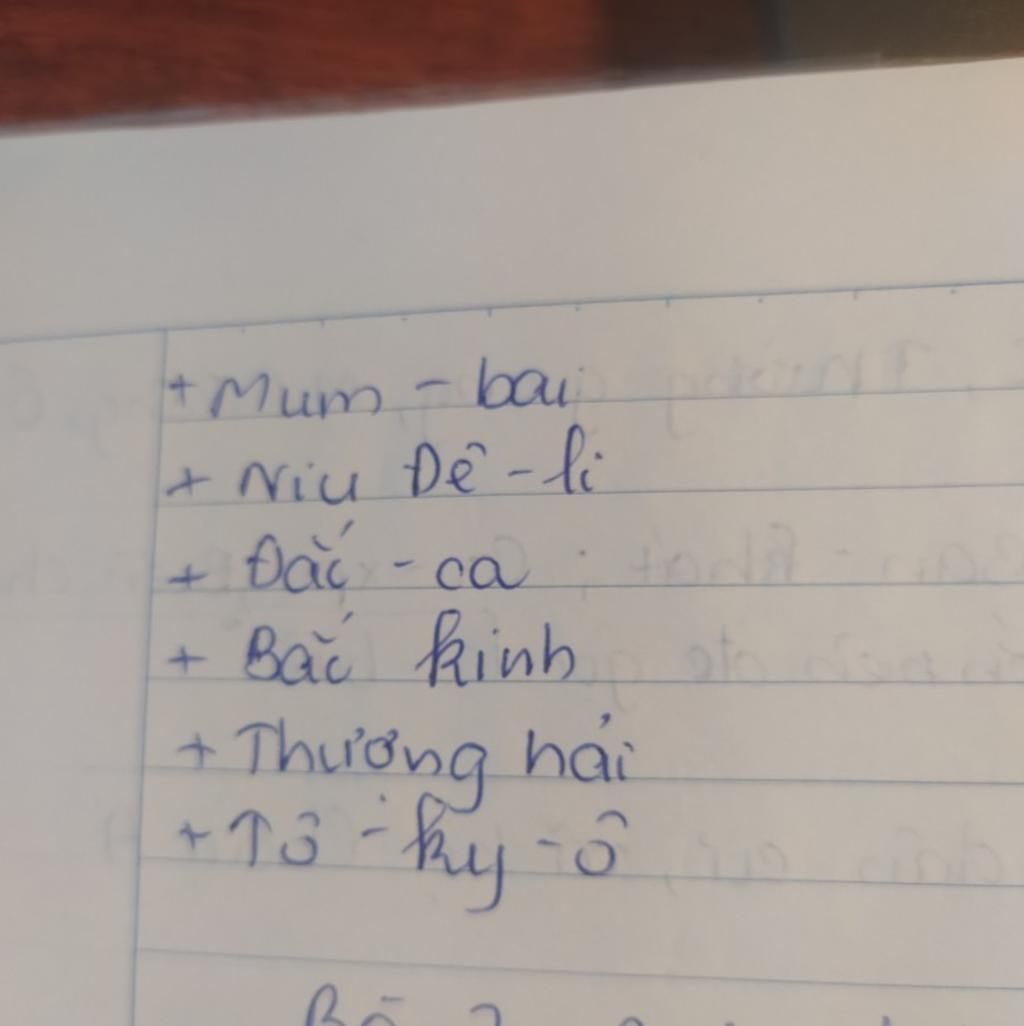 + Mum - bai
+ Niu Đê - li
+ Đắc - ca
+ Bắc kinh
+ Thương hải
+ Tô - ky - ô